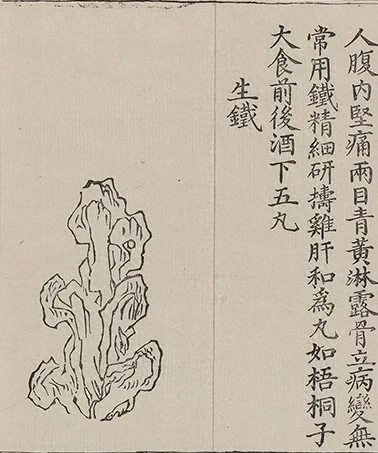 人腹内堅痛兩目青黃淋露骨立病變無
常用鐵精細研擣雞肝和為丸如梧桐子
大食前後酒下五丸
生鐵